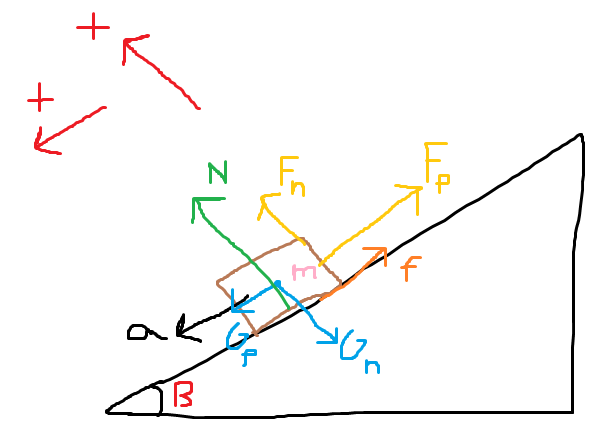 +
+
N
Fn
Fp
m
f
a
Gp
Gn
B